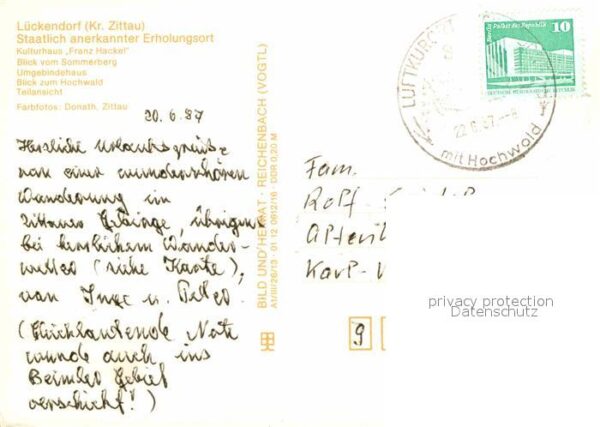 Lückendorf (Kr. Zittau)
Staatlich anerkannter Erholungsort
Kulturhaus „Franz Hackel"
Blick vom Sommerberg
Umgebindehaus
Blick zum Hochwald
Teilansicht
Farbfotos: Donath, Zittau
20.6.87
Herzliche Urlaubsgrüße
von einer wunderschönen
Wanderung im
Zittauer Gebirge, übrigens
bei herrlichem Wander-
wetter (siehe Karte),
von Inge u. Peter.
(Glücklautende Note
wurde auch ins
Gebiet
verschickt!)
BILD UND HEIMAT · REICHENBACH (VOGTL)
A1/III/26/13 01 12 0612/16 · DDR 0,20 M
LUFTKURORT
22.6.87.--8
mit Hochwald
Berlin, Palast der Republik
10
DEUTSCHE DEMOKRATISCHE REPUBLIK
Fam.
Rolf
Karl-
9
privacy protection
Datenschutz